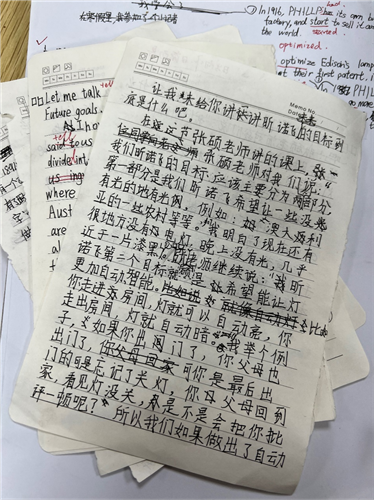 ②In 1916, PHILLP
has its own
factory, and start to sell it
the world.
started
optimized.
optimize Edison's lamp
their first patent, i
在寒假里,我参加了一个
Let me talk
Future goals
tell
said to us
divide int
us ing
where
Aust
are
Memo No.
Date
让我来给你讲讲昕诺飞的目标到
底是什么吧,
在这节张硕老师讲的课上,张
张硕老师对我们说:"
我们昕诺飞的目标应该主要分为两部分,
第一部分是我们昕诺飞希望让一些没光
有光的地有光明。例如:澳大利
亚的一些农村等等。"我明白了现在还有
很地方没有电灯,晚上没有光,几乎
近于一片漆黑。张老师继续说:"我昕
诺飞第二个目标就是希望能让灯
更加自动智能。比如
你走进房间,灯就可以自动亮,你
走出房间,灯就自动暗。"我举个例
子,如果你出门了,你父母也
出门了,可你是最后出
门的可是忘记了关灯,你父母回到
家,看见灯没关,是不是会把你批
评一顿呢?
所以我们如果做出了自动